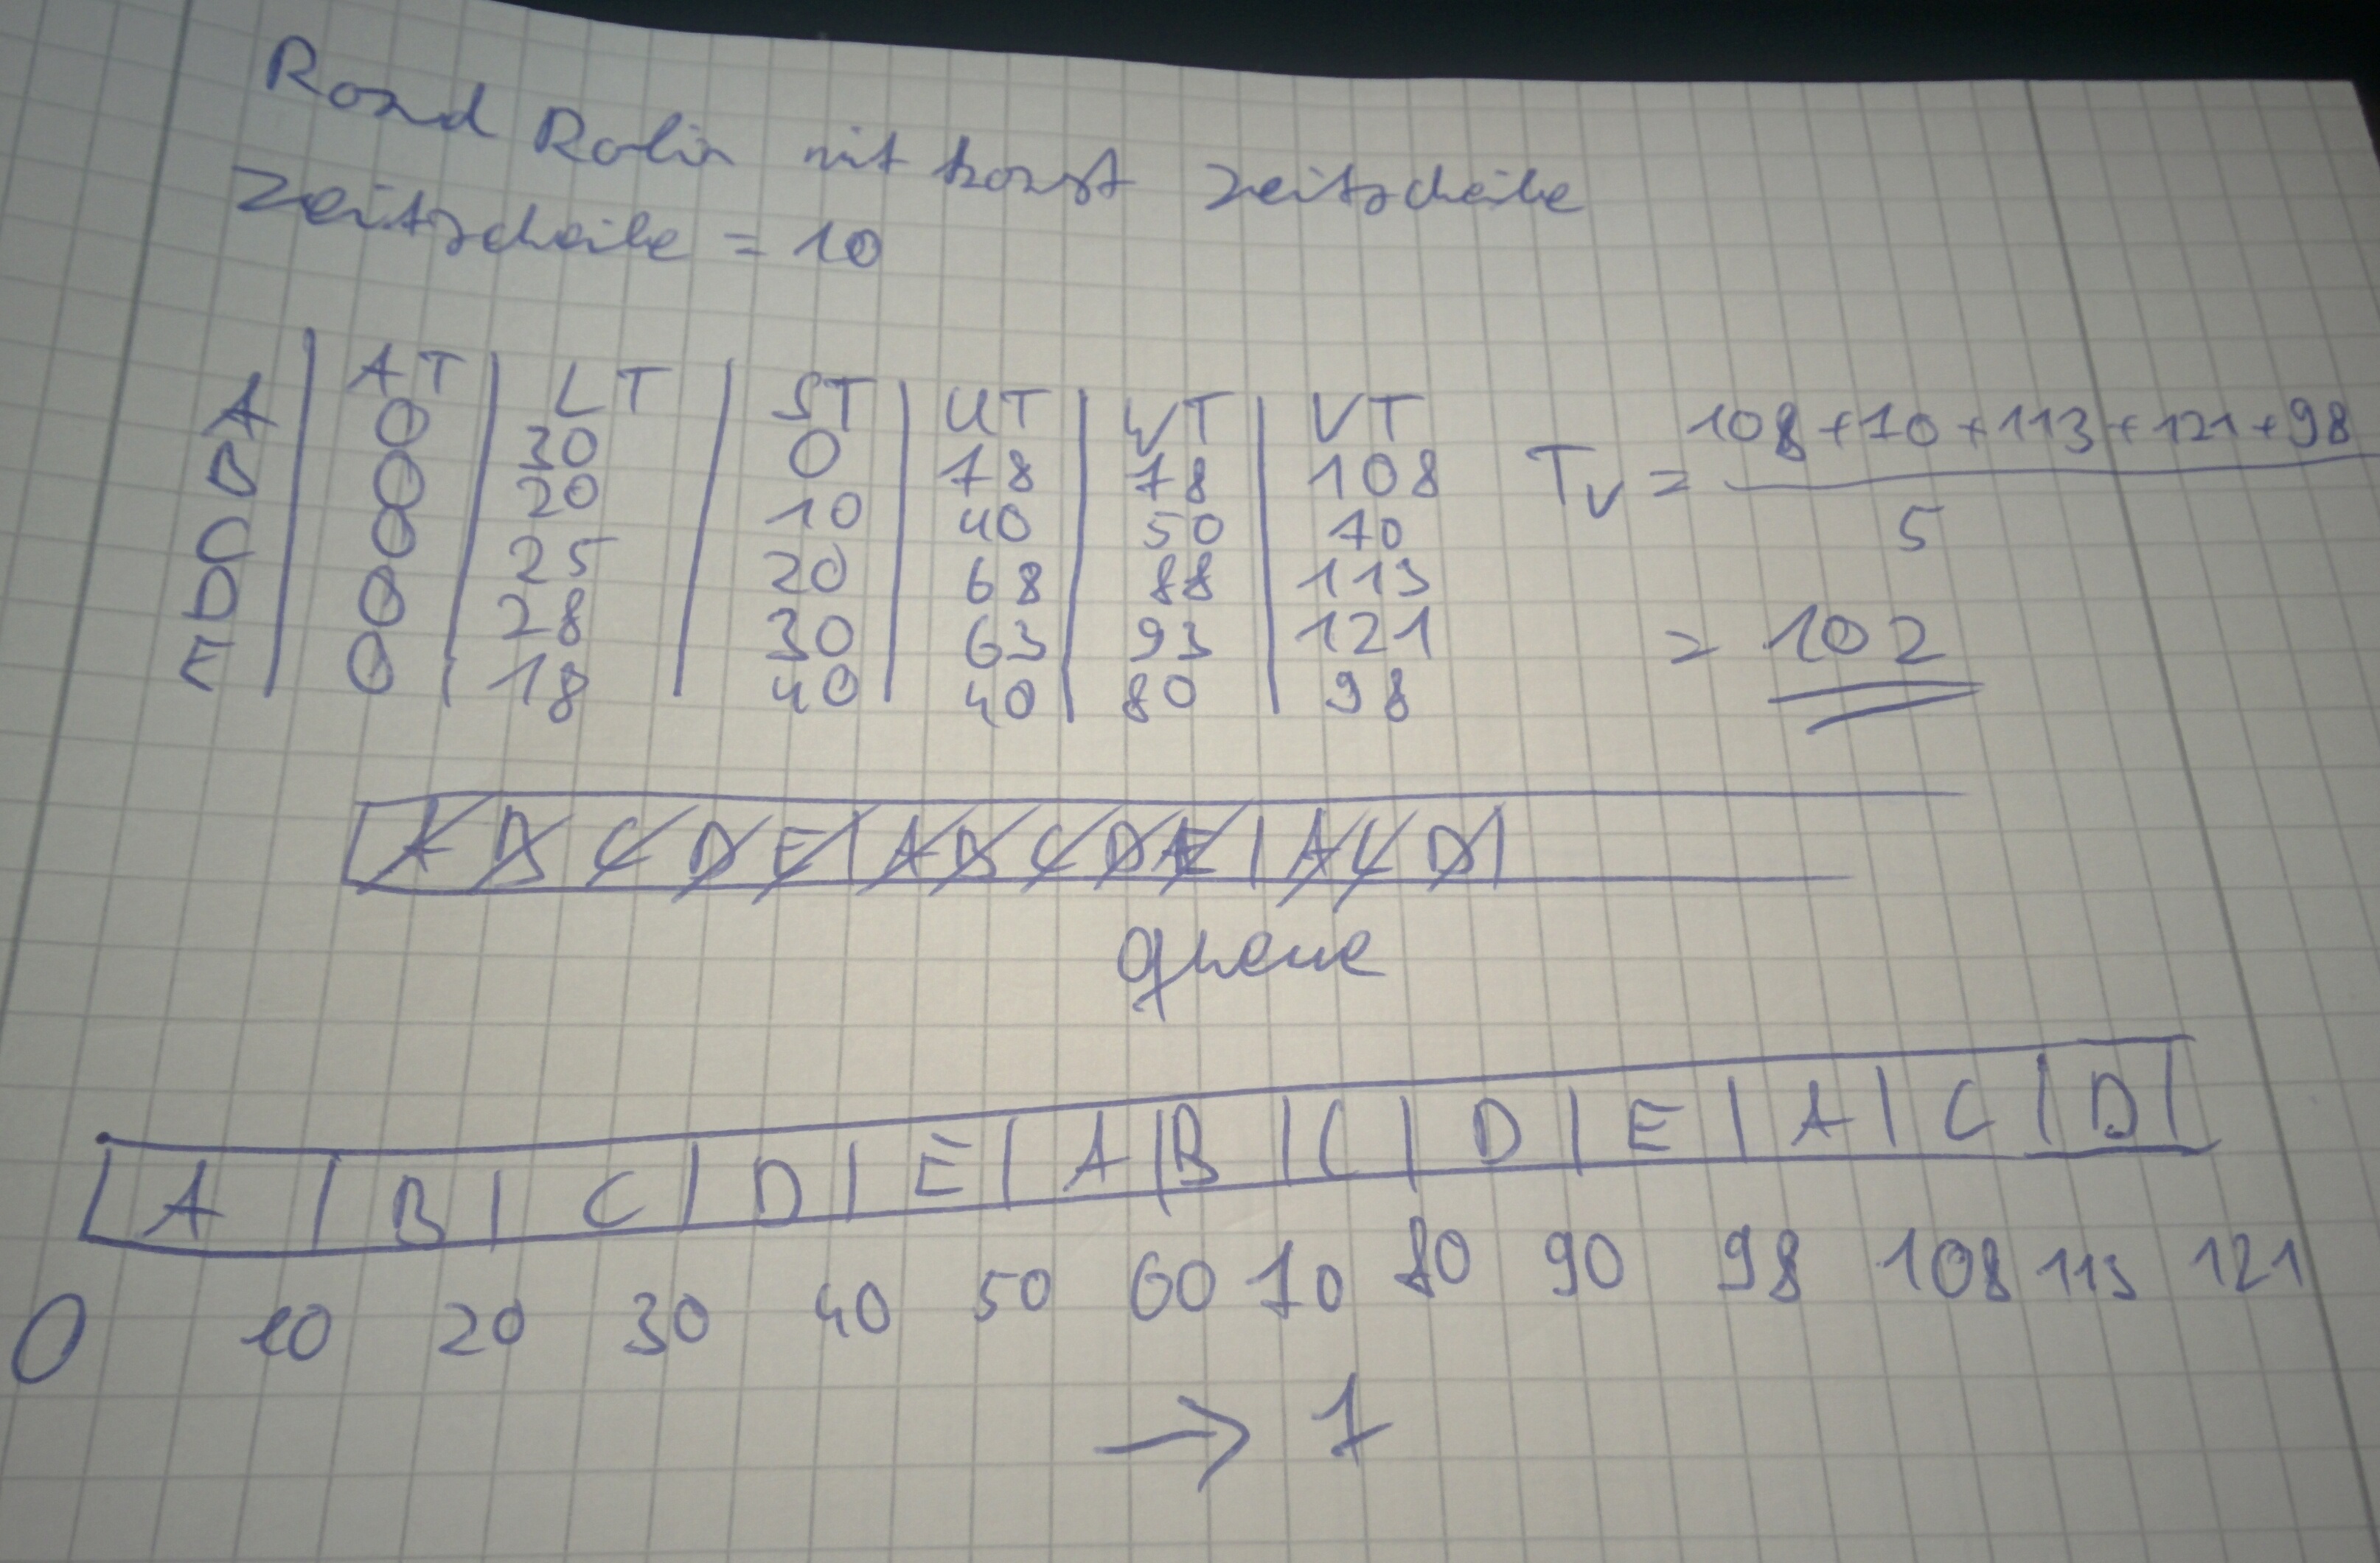 Round Robin mit konst Zeitscheibe
Zeitscheibe = 10
AT LT ST UT WT VT
A 0 30 0 78 78 108
B 0 20 10 40 50 70
C 0 25 20 68 88 113
D 0 28 30 63 93 121
E 0 18 40 40 80 98
Tv = 108+70+113+121+98
5
= 102
A B C D E | A B C D E | A C D |
queue
| A | B | C | D | E | A | B | C | D | E | A | C | D |
0 10 20 30 40 50 60 70 80 90 98 108 113 121
→ T